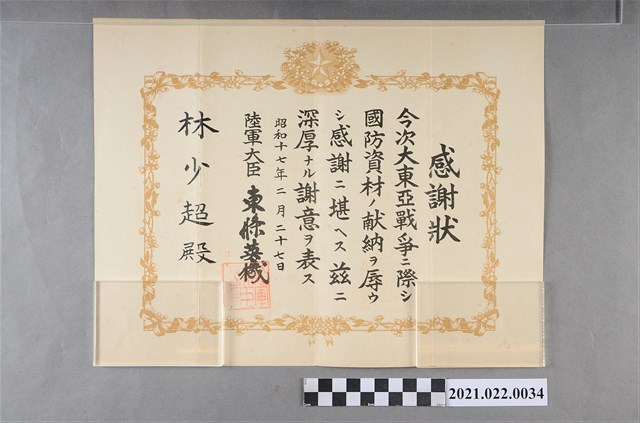 感謝狀
今次大東亞戰爭ニ際シ
國防資材ノ献納ヲ辱ウ
シ感謝ニ堪ヘス茲ニ
深厚ナル謝意ヲ表ス
昭和十七年二月二十七日
陸軍大臣 東條英機
林少超殿
2021.022.0034